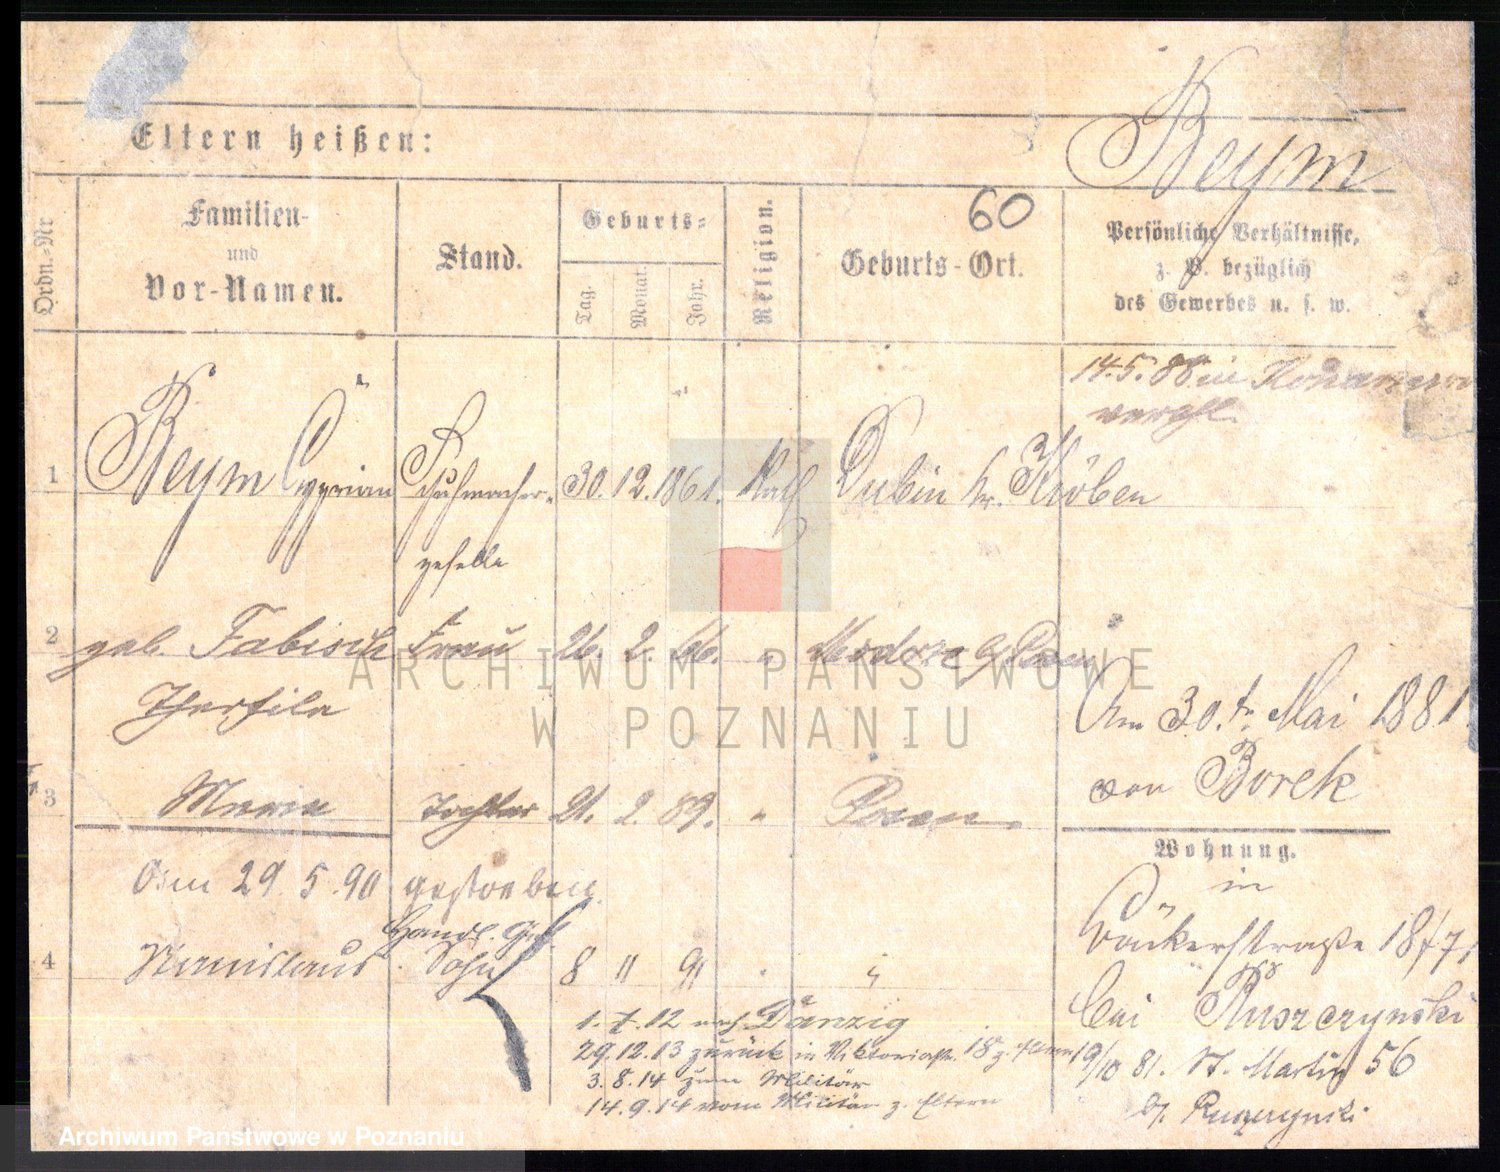 Eltern heißen:
Beym
60
Ordn.-Nr
Familien-
und
Vor-Namen.
Stand.
Geburts-
Tag.
Monat.
Jahr.
Religion.
Geburts-Ort.
Persönliche Verhältnisse,
z. B. bezüglich
des Gewerbes u. s. w.
14.5.88 in
verehl.
1 Beym Cyprian Schuhmacher- 30. 12. 1861. Kath Dubin kr. Kröben
geselle
2 geb. Fabisch Frau 26. 2. 66. "
Theofila
Am 30. tn Mai 1881.
von Borek
3 Maria Tochter 21. 2. 89. " Posen
Wohnung.
in
Am 29. 5. 90 gestorben
Handl. Geh.
4 Stanislaus Sohn 8 11 91 " "
Bäckerstraße 18/7,
bei Ruszczynski
1.7.12 nach Danzig
29.12.13 zurück in Viktoriastr. 18 z. Eltern
19/10 81. St. Martin 56
3.8.14 zum Militär
14.9.14 vom Militär z. Eltern
b/ Ruszczynski
ARCHIWUM PAŃSTWOWE
W POZNANIU
Archiwum Państwowe w Poznaniu